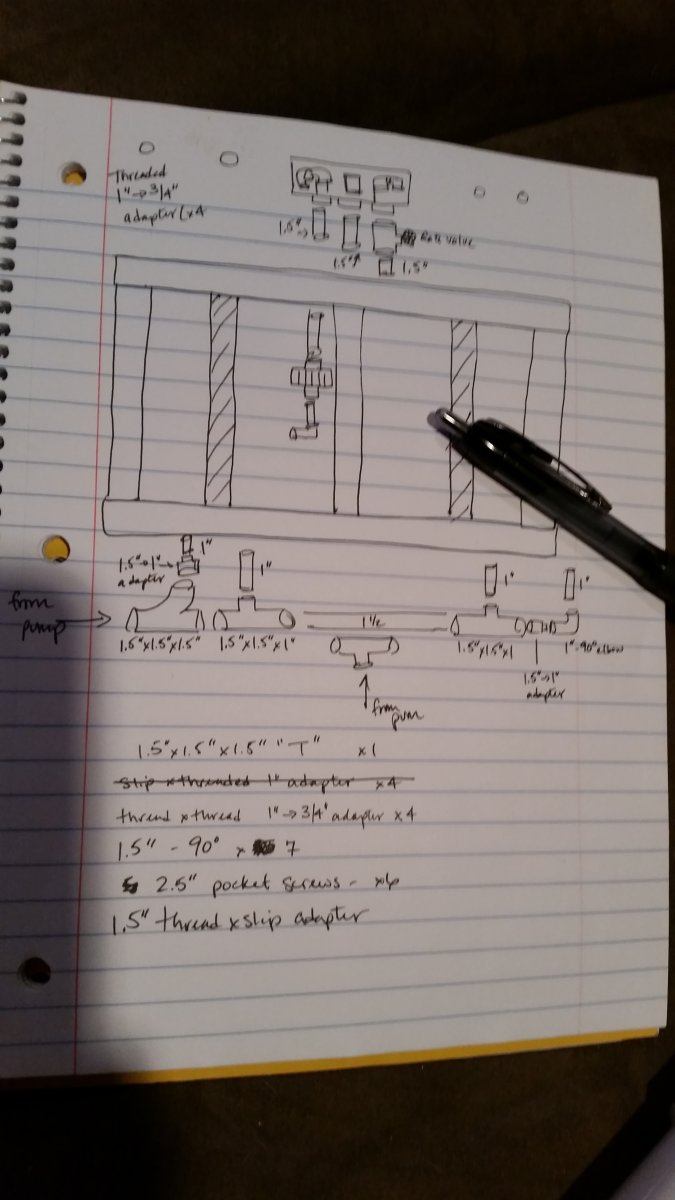 Threaded
1"→3/4"
adapter x4
1.5"→
1.5"↗
Gate valve
1.5"
1"
1.5"→1"→
adapter
1"
1"
1"
from
pump
1.5"x1.5"x1.5"
1.5"x1.5"x1"
1 1/2
1.5"x1.5"x1
1"-90° elbow
1.5"→1"
adapter
from
1.5"x1.5"x1.5" "T" x1
slip x threaded 1" adapter x4
thread x thread 1"→3/4" adapter x4
1.5" - 90° x 7
2.5" pocket screws - x6
1.5" thread x slip adapter